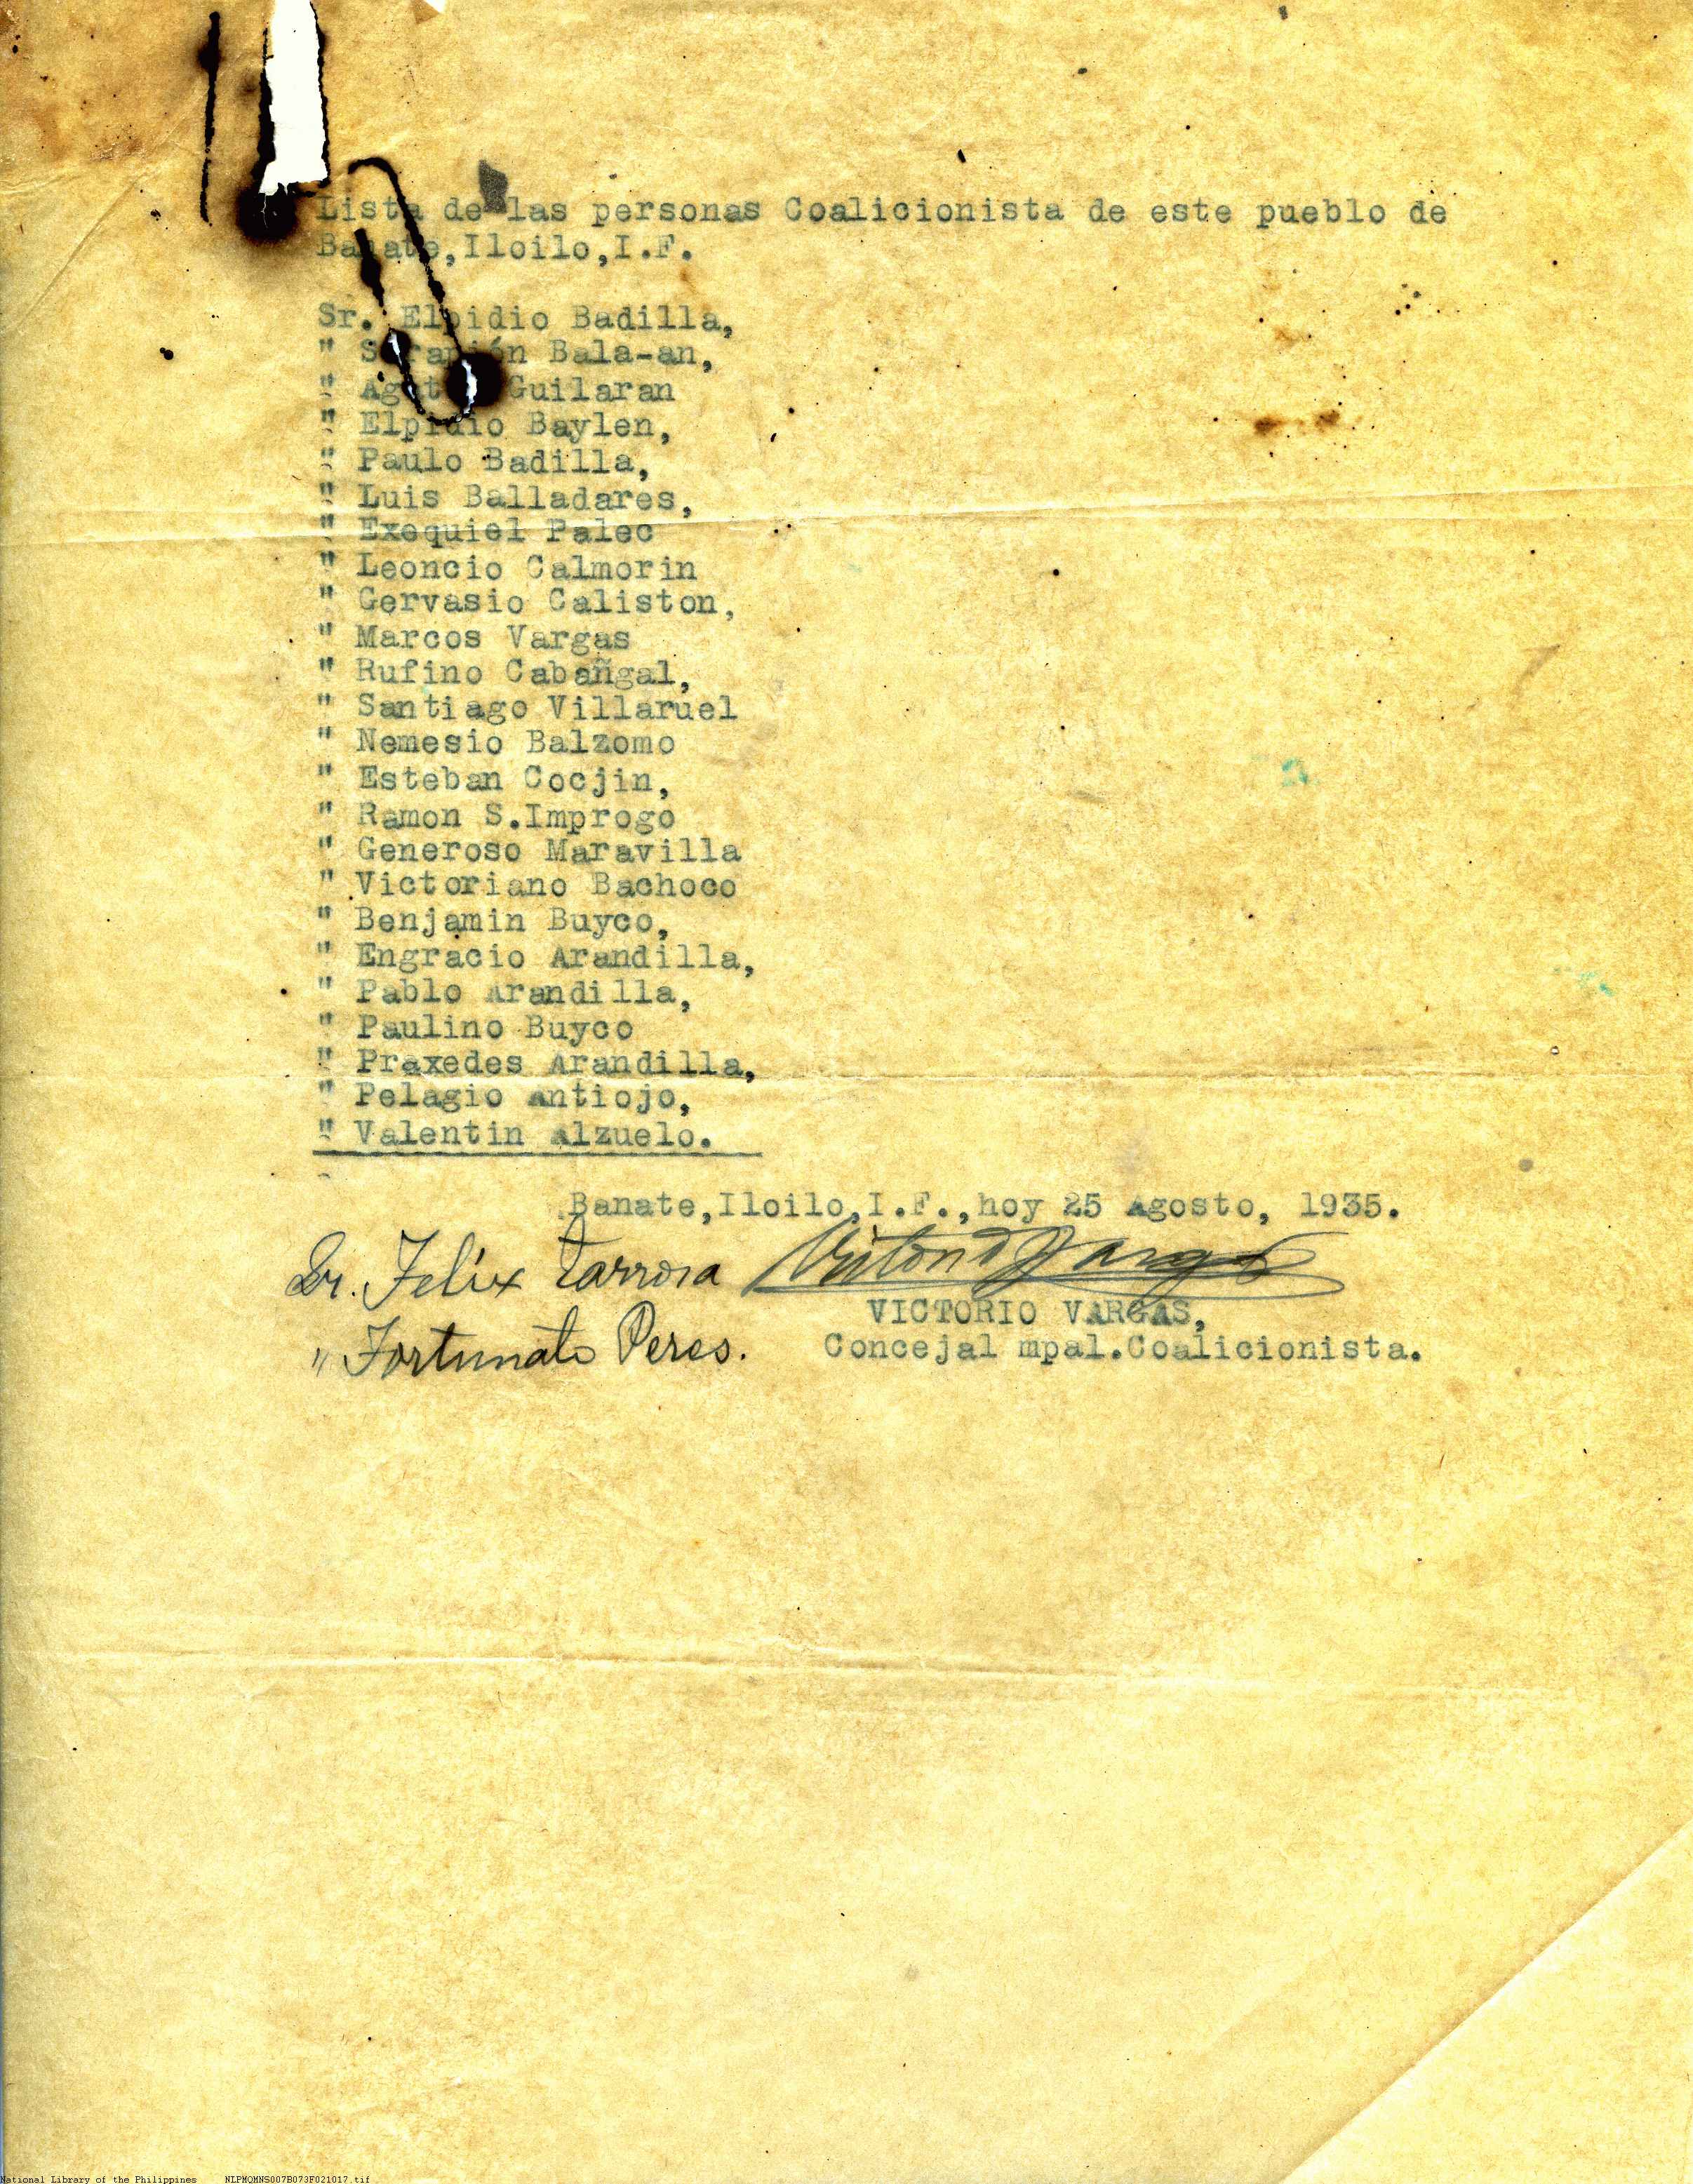 Lista de las personas Coalicionista de este pueblo de
Banate,Iloilo,I.F.
Sr. Elpidio Badilla,
" Serapión Bala-an,
" Guilaran
" Elpidio Baylen,
" Paulo Badilla,
" Luis Balladares,
" Exequiel Palec
" Leoncio Calmorin
" Gervasio Caliston,
" Marcos Vargas
" Rufino Cabañgal,
" Santiago Villaruel
" Nemesio Balzomo
" Esteban Cocjin,
" Ramon S.Improgo
" Generoso Maravilla
" Victoriano Bachoco
" Benjamin Buyco,
" Engracio Arandilla,
" Pablo Arandilla,
" Paulino Buyco
" Praxedes Arandilla,
" Pelagio Antiojo,
" Valentin Alzuelo.
Banate,Iloilo,I.F.,hoy 25 Agosto, 1935.
Sr. Felix Tarrosa Victorio Vargas
VICTORIO VARGAS,
" Fortunato Peres. Concejal mpal.Coalicionista.
National Library of the Philippines NLPMQMNS007B073F021017.tif